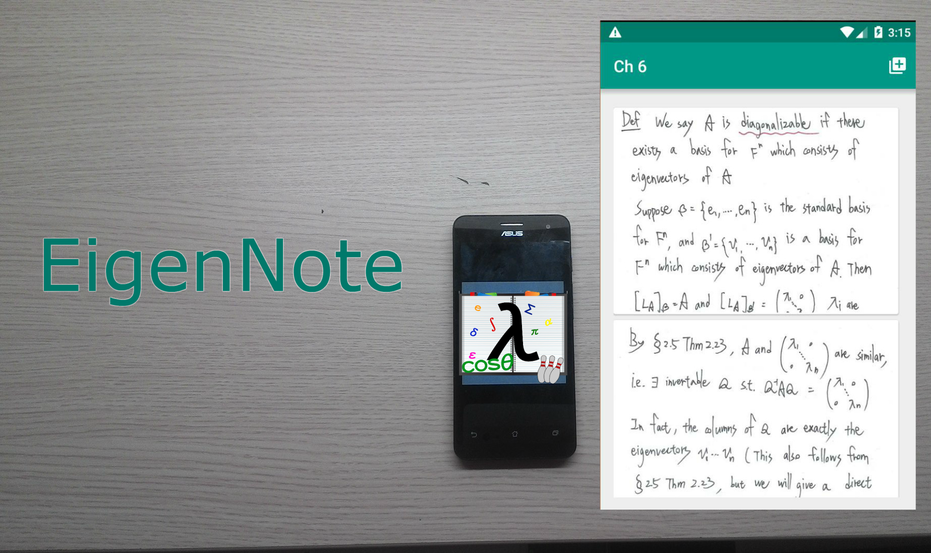 EigenNote
ASUS
e
Σ
δ
∫
λ
π
ε
cosθ
3:15
Ch 6
Def We say A is diagonalizable if there
exists a basis for Fⁿ which consists of
eigenvectors of A
Suppose β = {e₁, ⋯, eₙ} is the standard basis
for Fⁿ, and β' = {v₁, ⋯, vₙ} is a basis for
Fⁿ which consists of eigenvectors of A. Then
[L_A]_β = A and [L_A]_β' = (λ₁ 0 ⋱ ) λi are
By §2.5 Thm 2.23, A and (λ₁ 0 ⋱ 0 λₙ) are similar,
i.e. ∃ invertable Q st. Q⁻¹AQ = (λ₁ 0 ⋱ 0 λₙ)
In fact, the columns of Q are exactly the
eigenvectors v₁ ⋯ vₙ (This also follows from
§2.5 Thm 2.23, but we will give a direct